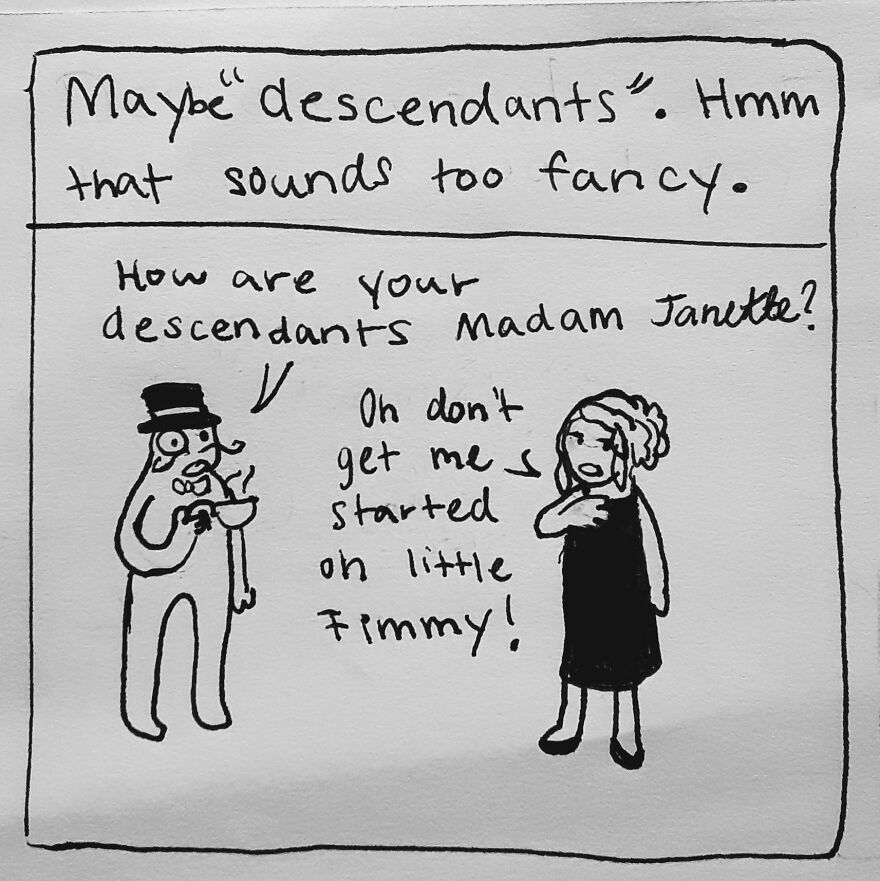 Maybe "descendants". Hmm
that sounds too fancy.
How are your
descendants Madam Janette?
Oh don't
get me
started
on little
Timmy!